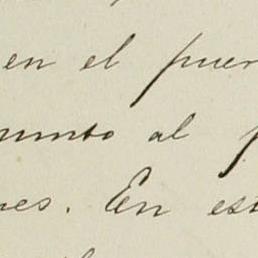 en el puer
munto al p
nes. En est